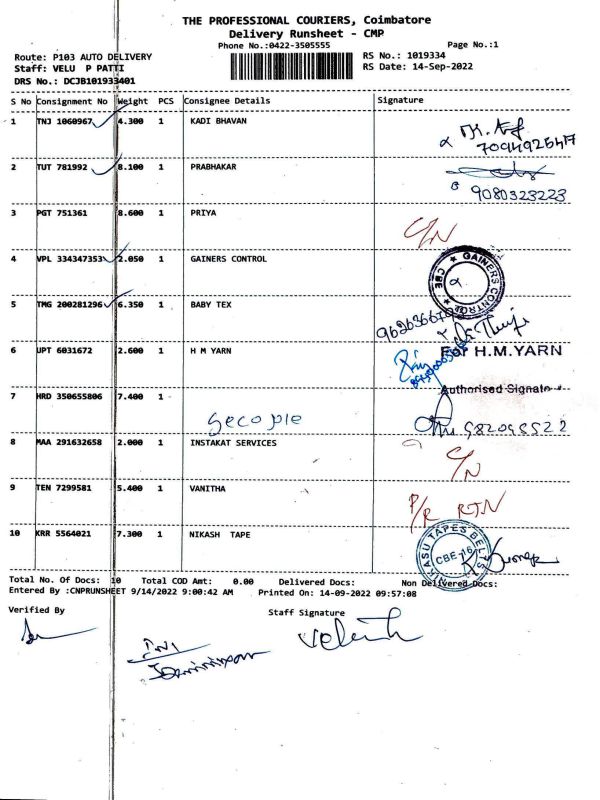 THE PROFESSIONAL COURIERS, Coimbatore
Delivery Runsheet - CMP
Phone No.:0422-3505555 Page No.:1
Route: P103 AUTO DELIVERY RS No.: 1019334
Staff: VELU P PATTI RS Date: 14-Sep-2022
DRS No.: DCJB101933401
S No Consignment No Weight PCS Consignee Details Signature
1 TNJ 1060967 4.300 1 KADI BHAVAN
2 TUT 781992 8.100 1 PRABHAKAR
9080323223
3 PGT 751361 8.600 1 PRIYA C/N
4 VPL 334347353 2.050 1 GAINERS CONTROL
GAINERS CONTROL CBE
5 TMG 200281296 6.350 1 BABY TEX
6 UPT 6031672 2.600 1 H M YARN For H.M.YARN
Authorised Signato
7 HRD 350655806 7.400 1
8 MAA 291632658 2.000 1 INSTAKAT SERVICES C/N
9 TEN 7299581 5.400 1 VANITHA P/R RTN
10 KRR 5564021 7.300 1 NIKASH TAPE
NIKASU TAPES BELTS CBE-16
Total No. Of Docs: 10 Total COD Amt: 0.00 Delivered Docs: Non Delivered Docs:
Entered By :CNPRUNSHEET 9/14/2022 9:00:42 AM Printed On: 14-09-2022 09:57:08
Verified By Staff Signature